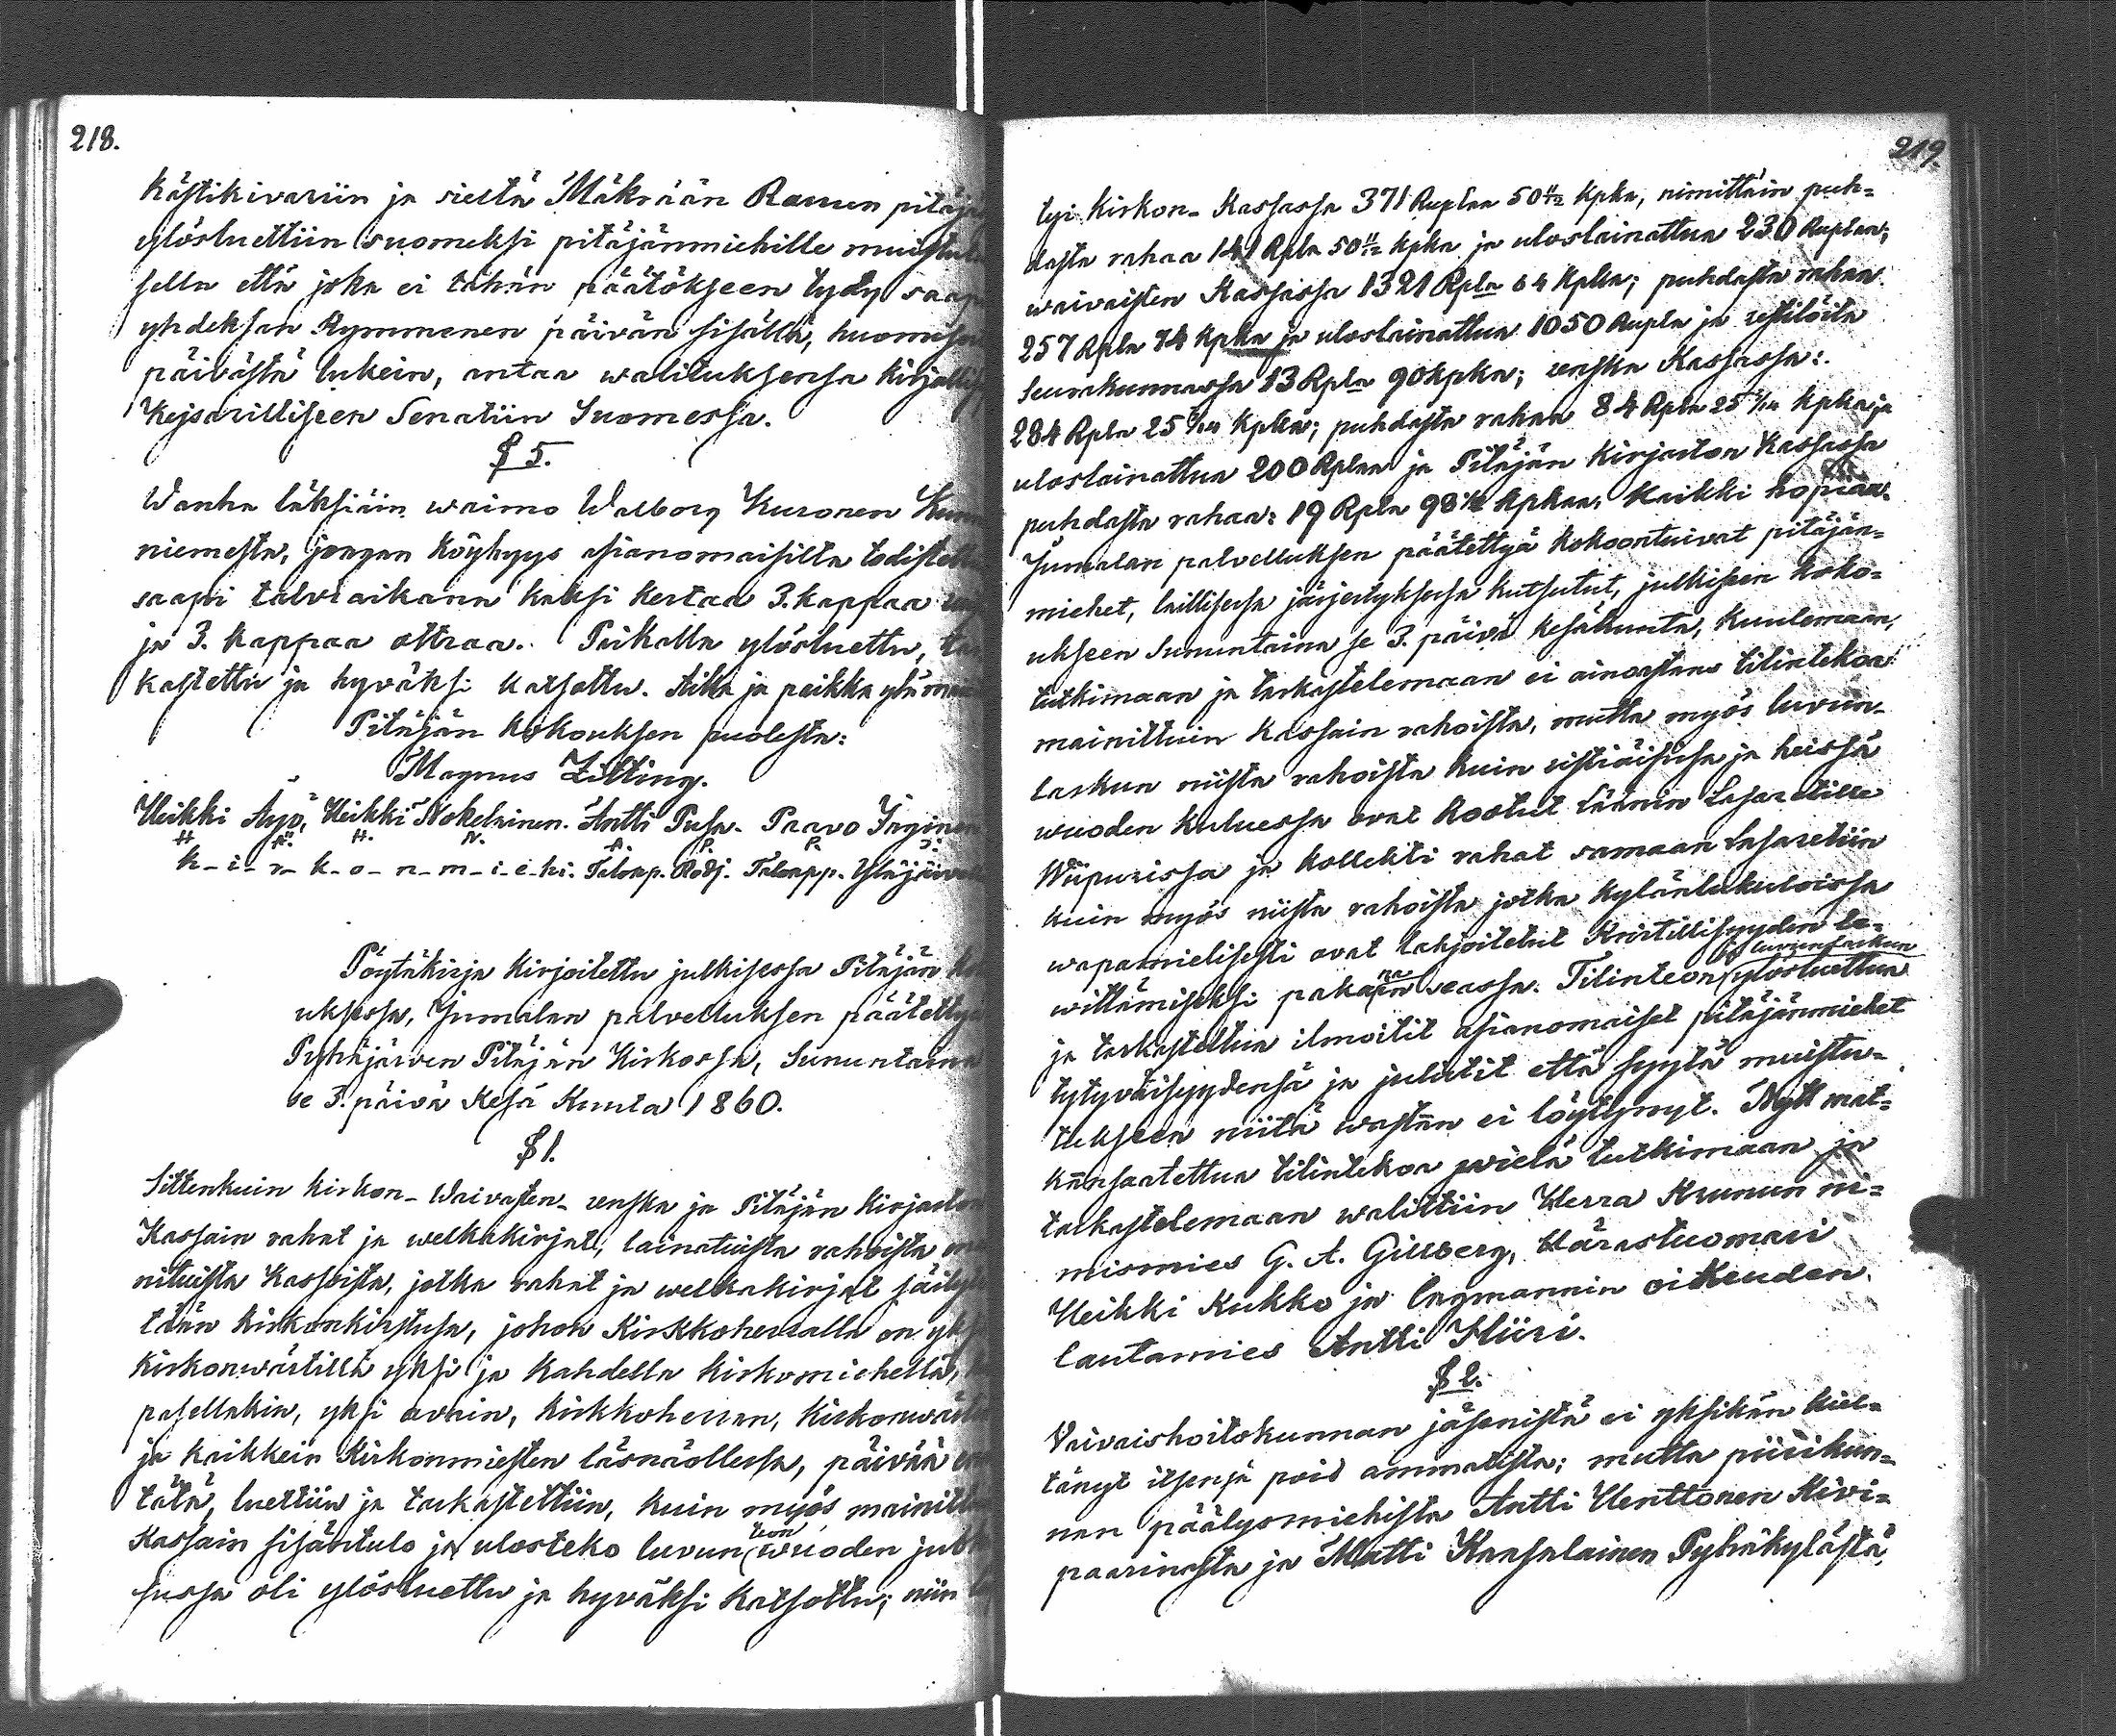 218.
Kästikivariin ja sieltä Mäkrään Raunun pitäjä
ylösluettiin suomeksi pitäjänmiehille muistu
sella että joka ei tähän päätökseen tydy saap
yhdeksän Kymmenen päivän sisällä, huomise
päivästä lukein, antaa walituksensa kirjallis
Kejsarilliseen Senatiin Suomessa.
§ 5.
Wanha läksiäin waimo Walborg Kuronen
niemestä, jongan köyhyys asianomaisilta todistett
saapi talviaikana kaksi kertaa 3. kappaa
ja 3. kappaa ottraa. Paikalla ylösluettu,
kastettu ja hyväksi katsottu. Aika ja paikka
Pitäjän kokouksen puolesta:
Magnus Zitting.
Heikki Äyö, Heikki Nokelainen. Antti Pusa. Paavo
H Ä. H. N. A. P. P.
k-i-r-k-o-n-m-i-e-hi. Talonp. Rodj. Talonpp. Yläjärve
Pöytäkirja kirjoitettu julkisessa Pitäjän
uksessa, Jumalan palvelluksen päätetty
Pyhäjärven Pitäjän Kirkossa, Sununtaina
se 3. päivä Kesä Kuuta 1860.
§ 1.
Sittenkuin kirkon- Waivasten- renska ja Pitäjän kirjasto
Kassain rahat ja welkakirjat, lainatuista rahoista
nituista Kassoista, jotka rahat ja welkakirjat säily
tään kirkonkirstusa, johon Kirkkoherralla on yk
kirkonwärtillä yksi ja kahdella kirkomiehellä,
pasellakin, yksi avain, kirkkoherran, kirkonwär
ja kaikkein kirkonmiesten läsnäollessa, päivää
tätä, luettiin ja tarkastettiin, kuin myös mainit
Kassain sisääntulo ja ulosteko luvun teon wuoden
sussa oli ylösluettu ja hyväksi katsottu; niin
219.
tyi kirkon- Kassassa 371 Ruplaa 50 1/2 Kpka, nimittäin puh-
dasta rahaa 141 Rpla 50 1/2 kpka ja uloslainattua 230 Ruplaa;
waivaisten Kassassa 1321 Rpla 64 Kpka; puhdasta rahaa
257 Rpla 74 Kpka ja uloslainattua 1050 Rupla ja restilöitä
seurakunnassa 13 Rpla 90 kpka; renska Kassassa:
284 Rpla 25 Kpka; puhdasta rahaa 84 Rpla 25 Kpka ja
uloslainattua 200 Rplaa ja Pitäjän kirjaston Kassassa
puhdasta rahaa: 19 Rpla 98 1/2 Kpkaa. Kaikki hopiaa.
Jumalan palvelluksen päätettyä kokoontuivat pitäjän-
miehet, laillisessa järjestyksessä kutsutut, julkiseen koko-
ukseen Sununtaina se 3. päivä kesäkuuta, kuulemaan,
tutkimaan ja tarkastelemaan ei ainoastans tilintekoa
mainittuin kassain rahoista, mutta myös luvun-
laskun niistä rahoista kuin sistiäisissä ja heissä
wuoden kuluessa ovat kootut läänin Lasaretille
Wiipurissa ja kollekti rahat samaan Lasaretiin
kuin myös niistä rahoista jotka kylänlukuloissa
wapamielisesti ovat lahjoitetut Kristillisyyden le-
wittämiseksi pakanain seassa. Tilinteon ja luvunlaskun ylösluettua
ja tarkastettua ilmoitit asianomaiset pitäjänmiehet
tytyväisyydensä ja julistit että syytä muistu-
tukseen niitä wastan ei löytynyt. Nytt mat-
kansaatettua tilintekoa wielä tutkimaan ja
tarkastelemaan walittiin Herra Kruunun ni-
mismies G. A. Gillberg, Härastuomari
Heikki Kukko ja Lagmannin oikeuden
lautamies Antti Hiiri.
§ 2.
Vaivaishoitokunnan jäsenistä ei yksikän kiel-
tänyt itsensä pois ammatista; mutta piirikun-
nan päälysmiehistä Antti Henttonen Kivi-
paarinasta ja Matti Kansalainen Pyhäkylästä,